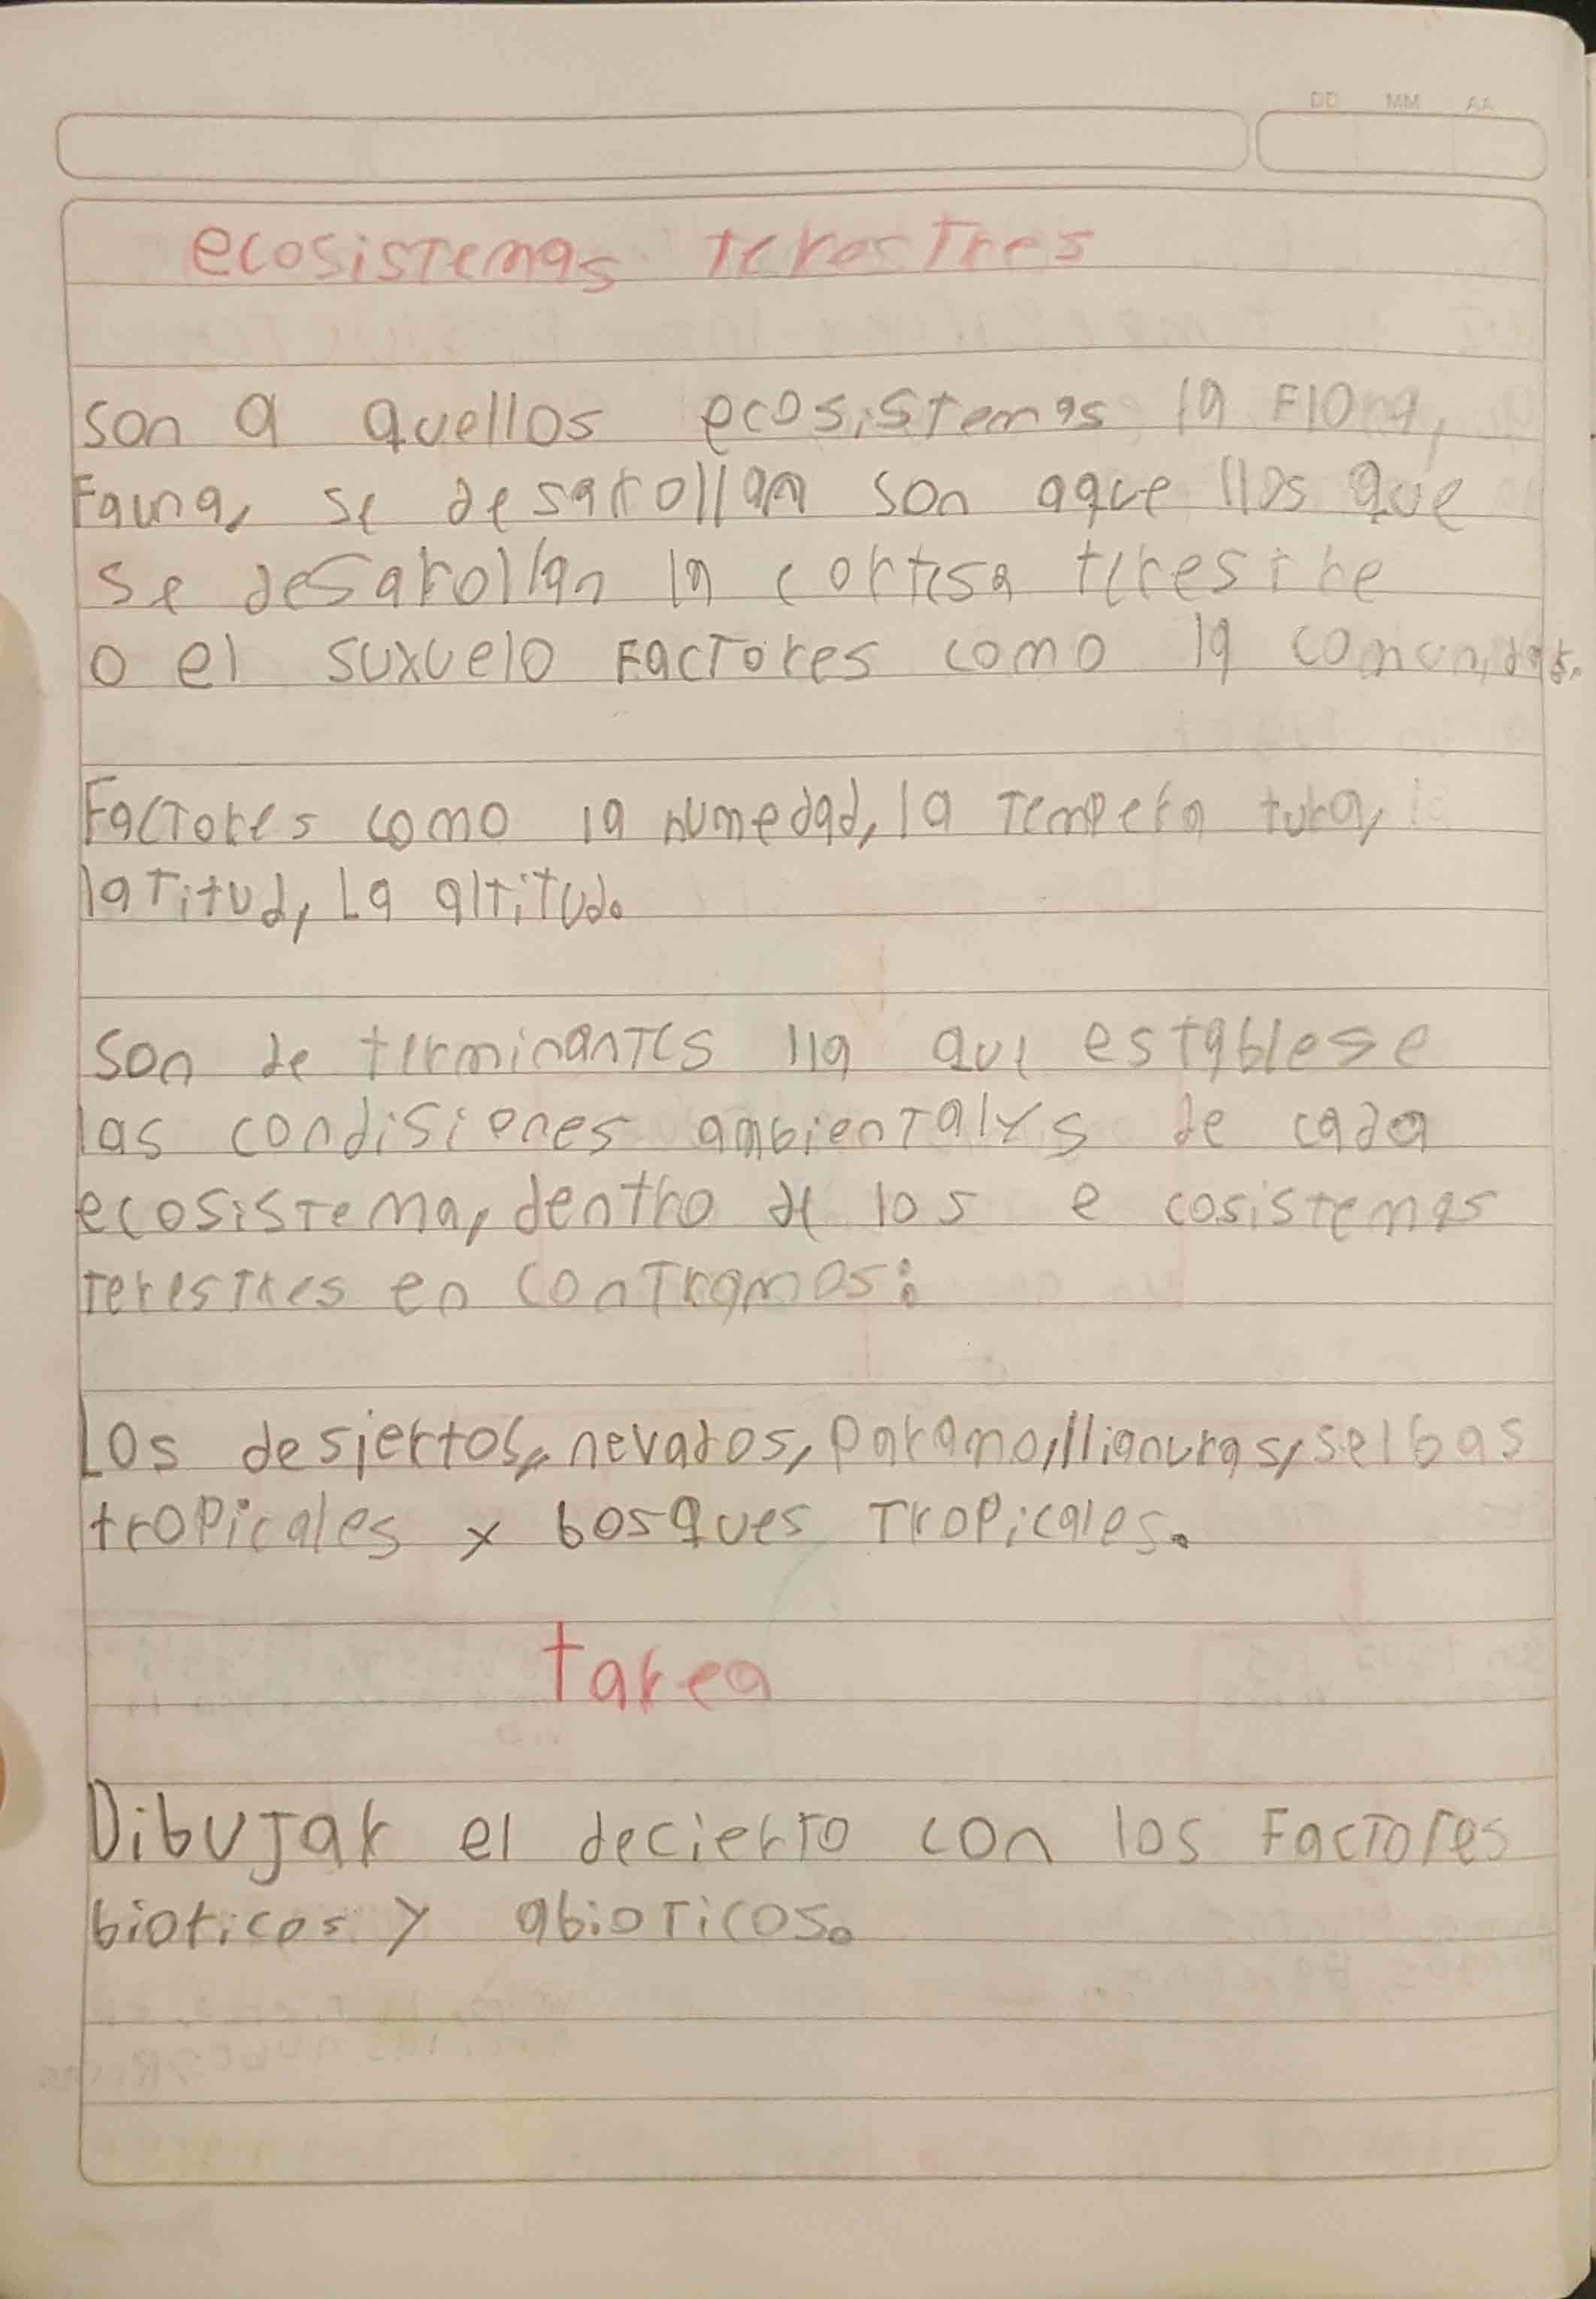 DD MM AA
ecosistemas terestres
son a quellos ecosistemas la Flora,
Fauna, se desarollan son aque llos que
se desarollan la cortesa terestre
o el suxuelo Factores como la comunidad.
Factores como la humedad, la tempera tura, la
latitud, La altitud.
son de terminantes lla que establese
las condisiones ambientalys de cada
ecosistema, dentro de los e cosistemas
terestres en contramos:
Los desiertos, nevados, paramo, llianuras, selbas
tropicales x bosques tropicales.
tarea
Dibujar el decierto con los Factores
bioticos y abioticos.